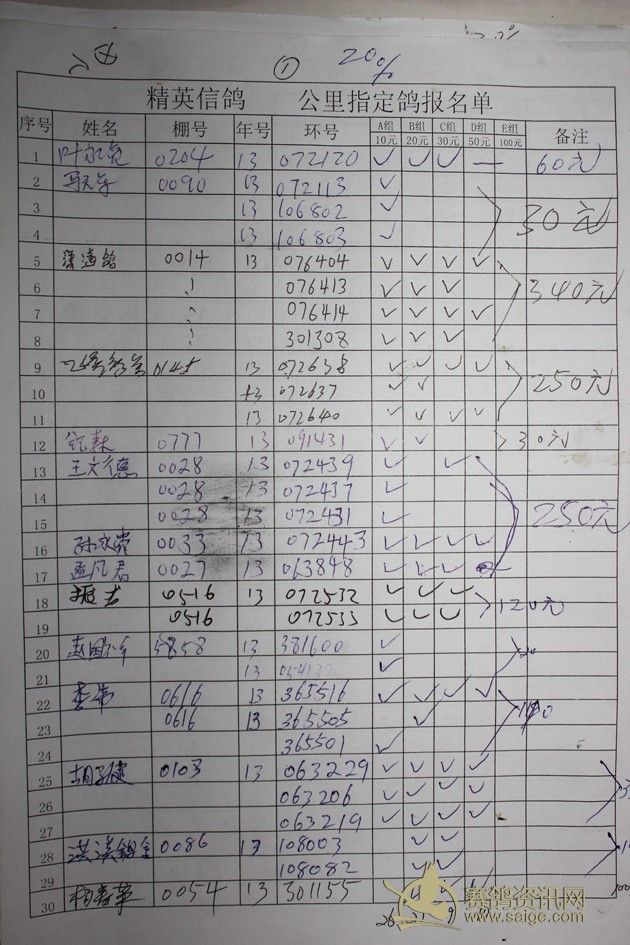 ① 20%
精英信鸽 公里指定鸽报名单
序号 姓名 棚号 年号 环号 A组 B组 C组 D组 E组 备注
10元 20元 30元 50元 100元
1 0204 13 072120 ✓ ✓ ✓ — 60元
2 0090 13 072113 ✓
3 13 106802 ✓ 30元
4 13 106803 ✓
5 0014 13 076404 ✓ ✓ ✓ ✓
6 076413 ✓ ✓ ✓ 340元
7 076414 ✓ ✓ ✓ ✓
8 301308 ✓ ✓ ✓
9 0145 13 072638 ✓ ✓ ✓ ✓
10 13 072637 ✓ ✓ 250元
11 13 072640 ✓ ✓ ✓ ✓
12 0777 13 091431 ✓ ✓ 30元
13 王文德 0028 13 072439 ✓ ✓
14 0028 13 072437 ✓
15 0028 13 072431 ✓ 250元
16 0033 13 072443 ✓ ✓ ✓ ✓
17 0027 13 063848 ✓ ✓ ✓
18 0516 13 072532 ✓ ✓ ✓ 120元
19 0516 072533 ✓ ✓ ✓
20 5858 13 381600 ✓ 20
21 13 ✓
22 李伟 0616 13 365516 ✓ ✓ ✓ ✓
23 0616 13 365505 ✓
24 365501 ✓
25 0103 13 063229 ✓ ✓ ✓ ✓
26 063206 ✓ ✓ ✓ ✓
27 063219 ✓ ✓ ✓ ✓
28 0086 13 108003 ✓ ✓
29 108082 ✓ ✓
30 0054 13 301155
赛鸽资讯网
www.saige.com